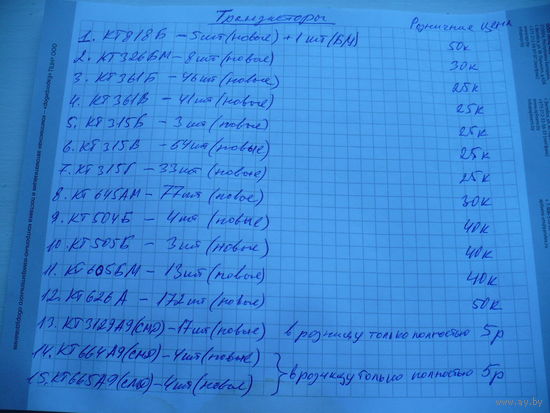 Транзисторы
Розничная цена
1. КТ818Б – 5шт(новые) + 1шт(БМ) 50к
2. КТ326БМ – 8шт(новые) 30к
3. КТ361Б – 46шт(новые) 25к
4. КТ361В – 41шт(новые) 25к
5. КТ315Б – 3шт(новые) 25к
6. КТ315В – 64шт(новые) 25к
7. КТ315Г – 33шт(новые) 25к
8. КТ645АМ – 77шт(новые) 30к
9. КТ504Б – 4шт(новые) 40к
10. КТ505Б – 3шт(новые) 40к
11. КТ605БМ – 13шт(новые) 40к
12. КТ626А – 172шт(новые) 50к
13. КТ3129А9(СМД) – 17шт(новые) в розницу только полностью 5р
14. КТ664А9(СМД) – 4шт(новые)
15. КТ665А9(СМД) – 4шт(новые) } в розницу только полностью 5р
www.ay.by